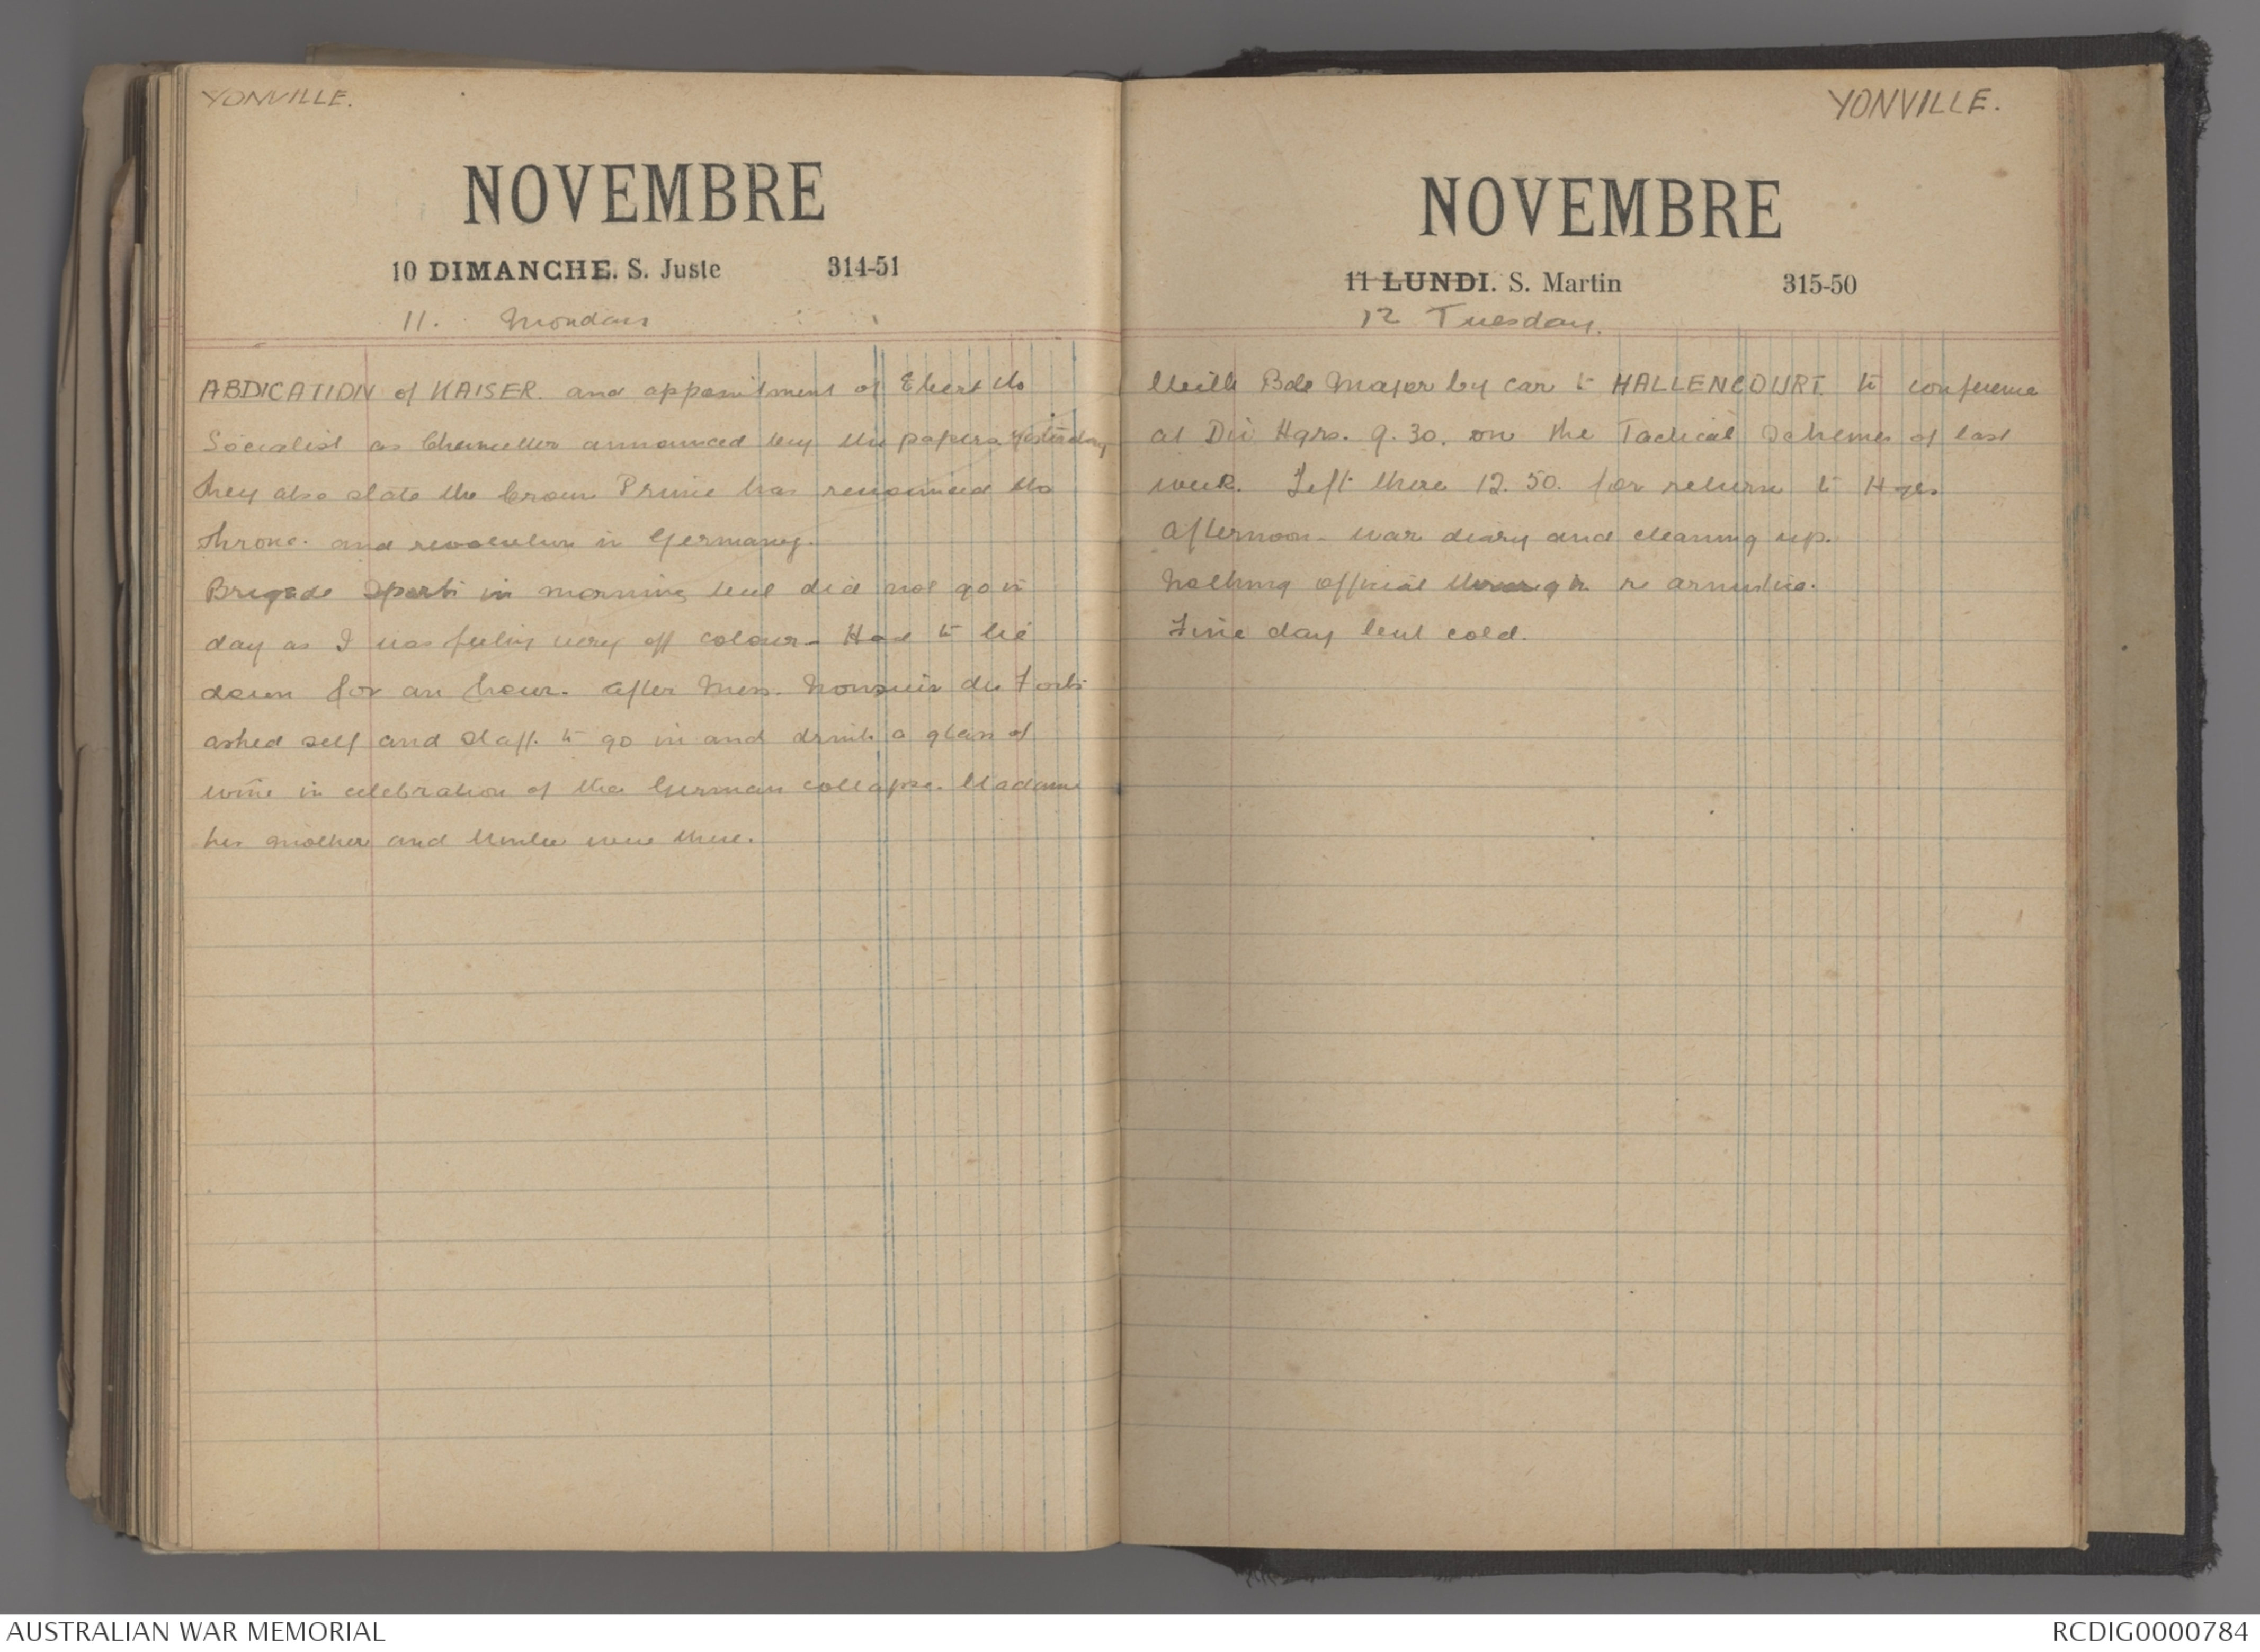 YONVILLE.
NOVEMBRE
10 DIMANCHE. S. Juste 314-51
11. Monday
ABDICATION of KAISER. and appointment of Ebert the
Socialist as Chancellor announced by the papers yesterday
They also state the Crown Prince has renounced the
throne. and revolution in Germany.
Brigade Sports in morning but did not go in
day as I was feeling very off colour - Had to lie
down for an hour. After Mess. Monsieur du
asked self and staff. to go in and drink a glass of
wine in celebration of the German collapse. Madame
his mother and were there.
YONVILLE.
NOVEMBRE
11 LUNDI. S. Martin 315-50
12 Tuesday.
With Bde Major by car to HALLENCOURT. to conference
at Div Hqrs. 9.30. on the Tactical Schemes of last
week. Left there 12.50. for return to Hqrs
Afternoon - war diary and cleaning up.
Nothing official through re armistice.
Fine day but cold.
AUSTRALIAN WAR MEMORIAL
RCDIG0000784